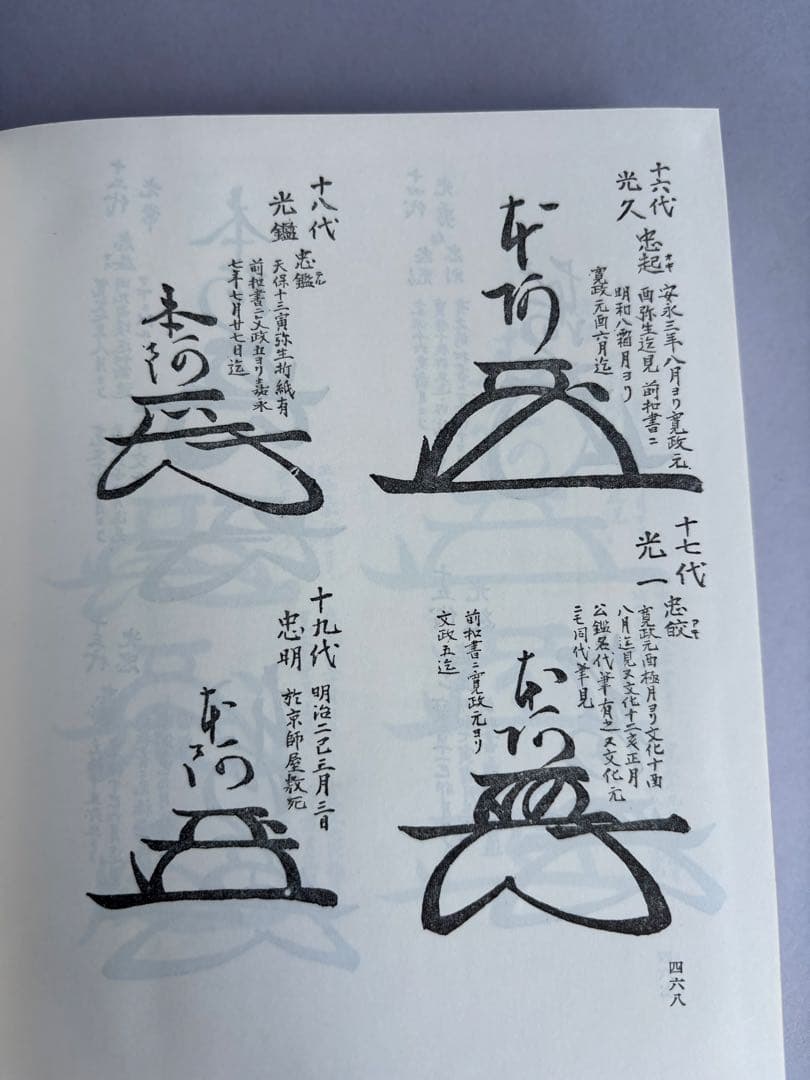 十六代
光久
忠起
オキ
安永三年八月ヨリ寛政元
酉弥生迄見 前扣書ニ
明和八霜月ヨリ
寛政元酉六月迄
本阿
十七代
光一
忠皎
アキ
寛政元酉極月ヨリ文化十酉
八月迄見又文化十二亥正月
公鑑名代筆有之又文化元
ニモ同代筆見
前扣書ニ寛政元ヨリ
文政五迄
本阿
十八代
光鑑
忠鑑
天保十三寅弥生折紙有
前扣書ニ文政五ヨリ嘉永
七年七月廿七日迄
本阿
十九代
忠明
明治二己三月三日
於京師屋敷死
本阿
四六八